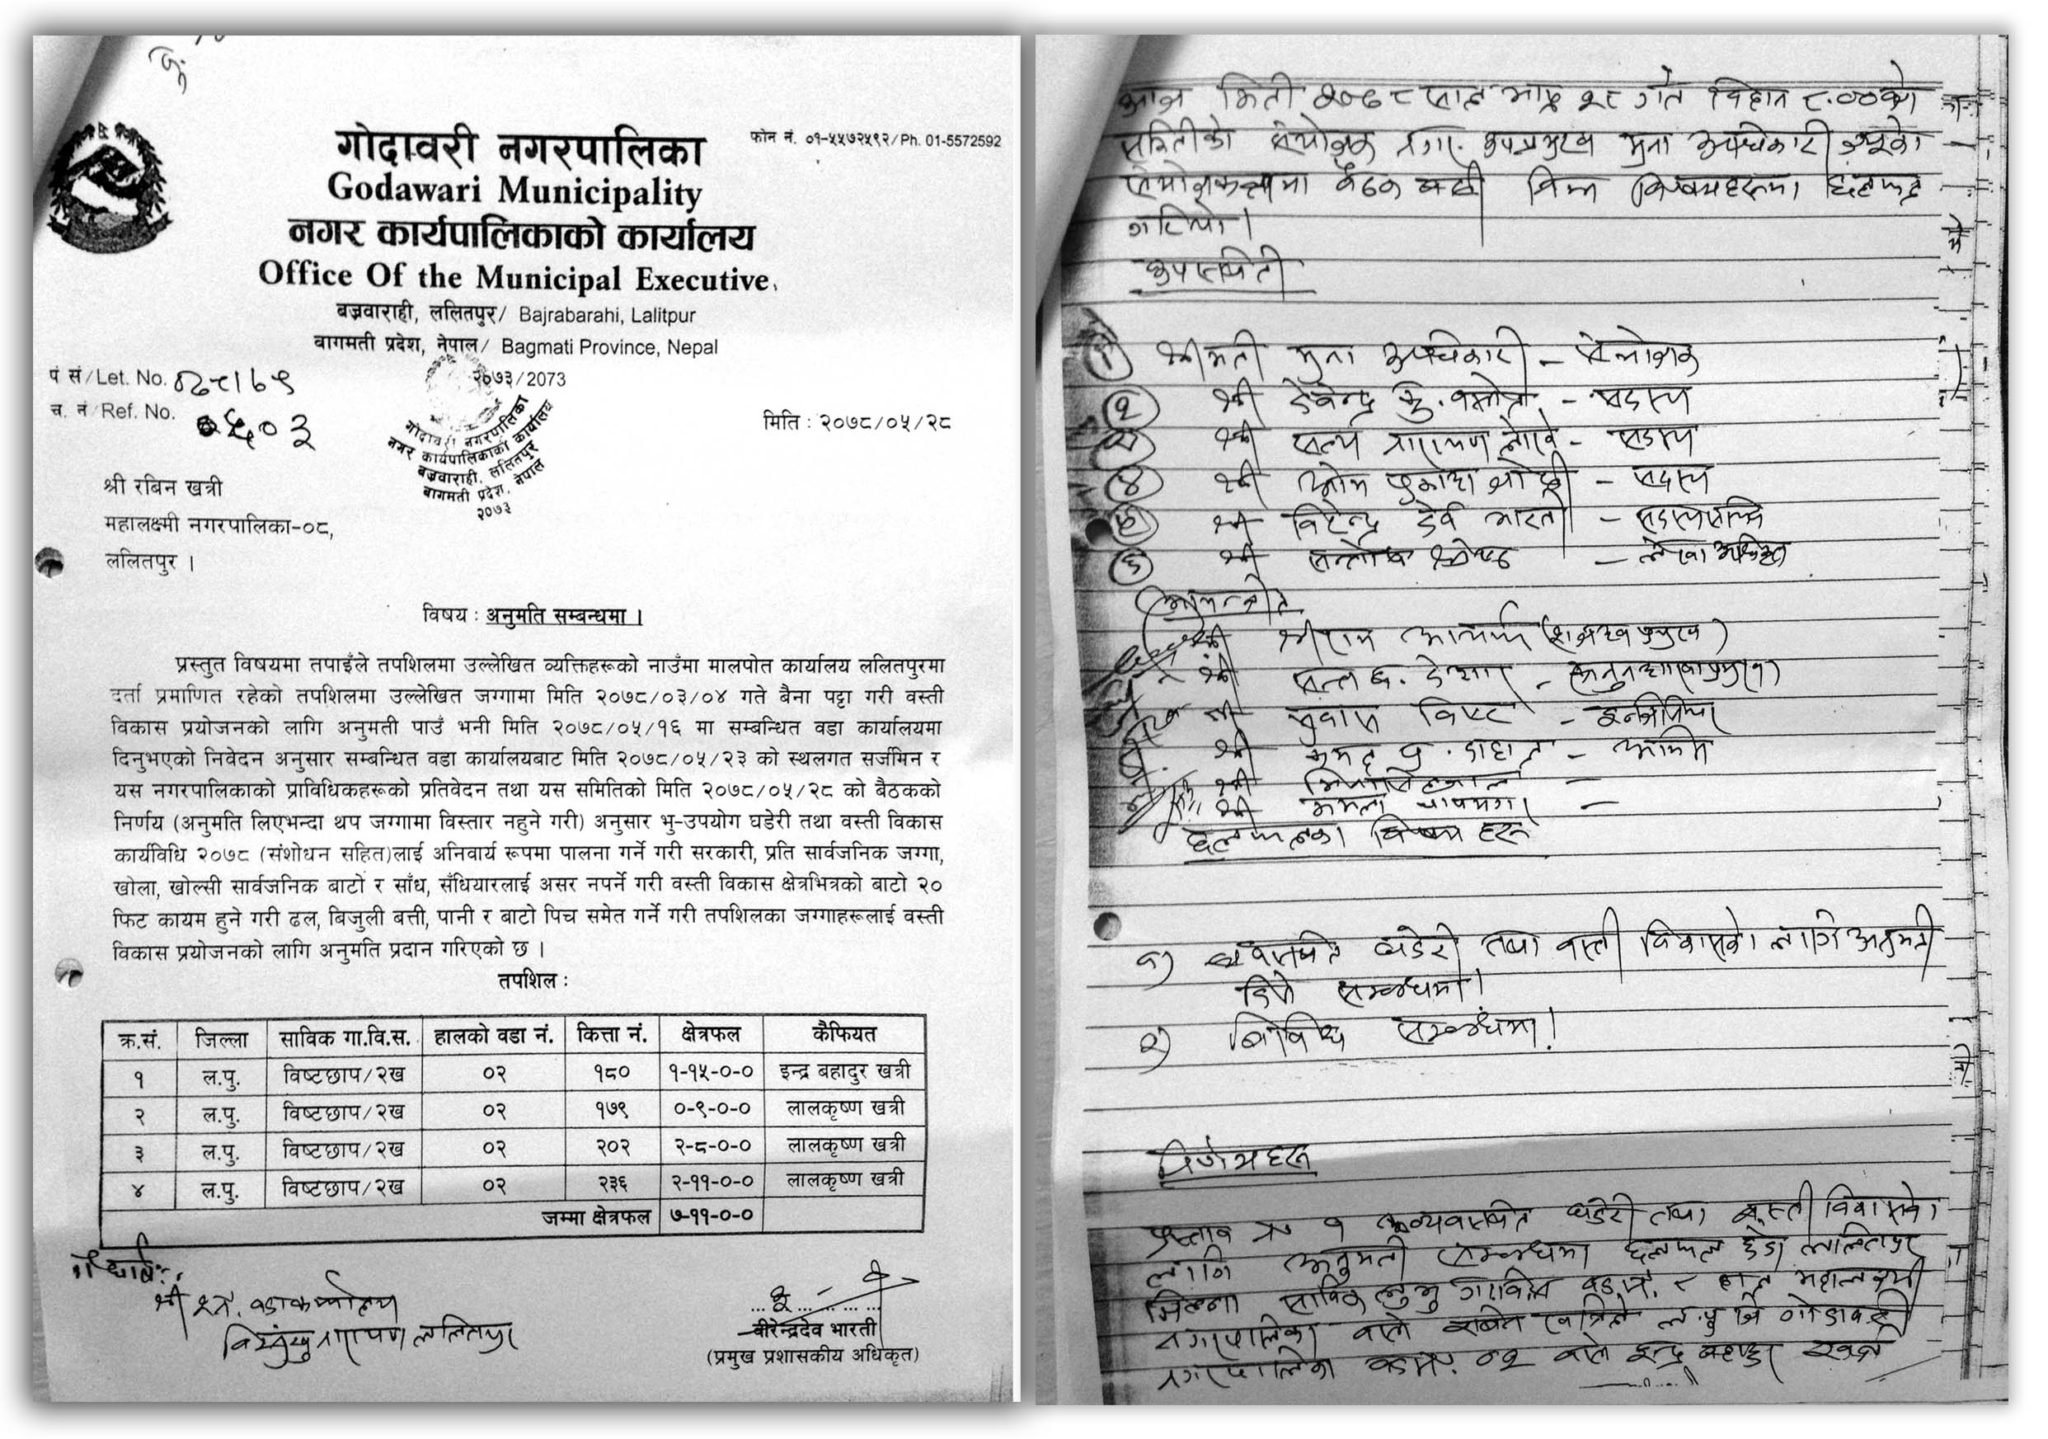 गोदावरी नगरपालिका
फोन नं. ०१-५५७२५९२/Ph. 01-5572592
Godawari Municipality
नगर कार्यपालिकाको कार्यालय
Office Of the Municipal Executive
बज्रवाराही, ललितपुर/ Bajrabarahi, Lalitpur
वागमती प्रदेश, नेपाल/ Bagmati Province, Nepal
२०७३/2073
पं सं/Let. No.
च. नं/Ref. No.
गोदावरी नगरपालिका
नगर कार्यपालिकाको कार्यालय
बज्रवाराही, ललितपुर
बागमती प्रदेश, नेपाल
२०७३
मिति : २०७८/०५/२८
श्री रबिन खत्री
महालक्ष्मी नगरपालिका-०८,
ललितपुर ।
विषय : अनुमति सम्बन्धमा ।
प्रस्तुत विषयमा तपाइँले तपशिलमा उल्लेखित व्यक्तिहरूको नाउँमा मालपोत कार्यालय ललितपुरमा
दर्ता प्रमाणित रहेको तपशिलमा उल्लेखित जग्गामा मिति २०७८/०३/०४ गते बैना पट्टा गरी वस्ती
विकास प्रयोजनको लागि अनुमती पाउँ भनी मिति २०७८/०५/१६ मा सम्बन्धित वडा कार्यालयमा
दिनुभएको निवेदन अनुसार सम्बन्धित वडा कार्यालयबाट मिति २०७८/०५/२३ को स्थलगत सर्जमिन र
यस नगरपालिकाको प्राविधिकहरूको प्रतिवेदन तथा यस समितिको मिति २०७८/०५/२८ को बैठकको
निर्णय (अनुमति लिएभन्दा थप जग्गामा विस्तार नहुने गरी) अनुसार भु-उपयोग घडेरी तथा वस्ती विकास
कार्यविधि २०७८ (संशोधन सहित)लाई अनिवार्य रूपमा पालना गर्ने गरी सरकारी, प्रति सार्वजनिक जग्गा,
खोला, खोल्सी सार्वजनिक बाटो र साँध, सँधियारलाई असर नपर्ने गरी वस्ती विकास क्षेत्रभित्रको बाटो २०
फिट कायम हुने गरी ढल, बिजुली बत्ती, पानी र बाटो पिच समेत गर्ने गरी तपशिलका जग्गाहरूलाई वस्ती
विकास प्रयोजनको लागि अनुमति प्रदान गरिएको छ ।
तपशिल :
क्र.सं. जिल्ला साविक गा.वि.स. हालको वडा नं. कित्ता नं. क्षेत्रफल कैफियत
१ ल.पु. विष्टछाप/२ख ०२ १८० १-१५-०-० इन्द्र बहादुर खत्री
२ ल.पु. विष्टछाप/२ख ०२ १७९ ०-९-०-० लालकृष्ण खत्री
३ ल.पु. विष्टछाप/२ख ०२ २०२ २-८-०-० लालकृष्ण खत्री
४ ल.पु. विष्टछाप/२ख ०२ २३६ २-११-०-० लालकृष्ण खत्री
जम्मा क्षेत्रफल ७-११-०-०
वीरेन्द्रदेव भारती
(प्रमुख प्रशासकीय अधिकृत)
आज मिती २०७८ साल भाद्र २८ गते विहान ८.०० बजे
समितीको संयोजक नगर उपप्रमुख मुना अधिकारी ज्यूको
संयोजकत्वमा बैठक बसी निम्न विषयहरूमा छलफल
गरियो ।
उपस्थिती
१ श्रीमती मुना अधिकारी - संयोजक
२ श्री - सदस्य
३ श्री सत्य नारायण - सदस्य
४ श्री ओम प्रकाश - सदस्य
५ श्री विरेन्द्र देव भारती - सदस्य सचिव
६ श्री सन्तोष श्रेष्ठ - लेखा अधिकृत
आमन्त्रीत
श्री श्रीराम
श्री
श्री विष्ट - इन्जिनियर
श्री - अमिन
छलफलका विषयहरू
१) व्यवस्थित घडेरी तथा वस्ती विकासको लागि अनुमती
दिने सम्बन्धमा ।
२) विविध सम्बन्धमा ।
निर्णयहरू
प्रस्ताव नं १ व्यवस्थित घडेरी तथा वस्ती विकासको
लागि अनुमती सम्बन्धमा छलफल हुँदा ललितपुर
जिल्ला साविक गाविस वडा नं. ८ हाल महालक्ष्मी
नगरपालिका बस्ने
नगरपालिका वडा नं. ०२ बस्ने इन्द्र बहादुर खत्री